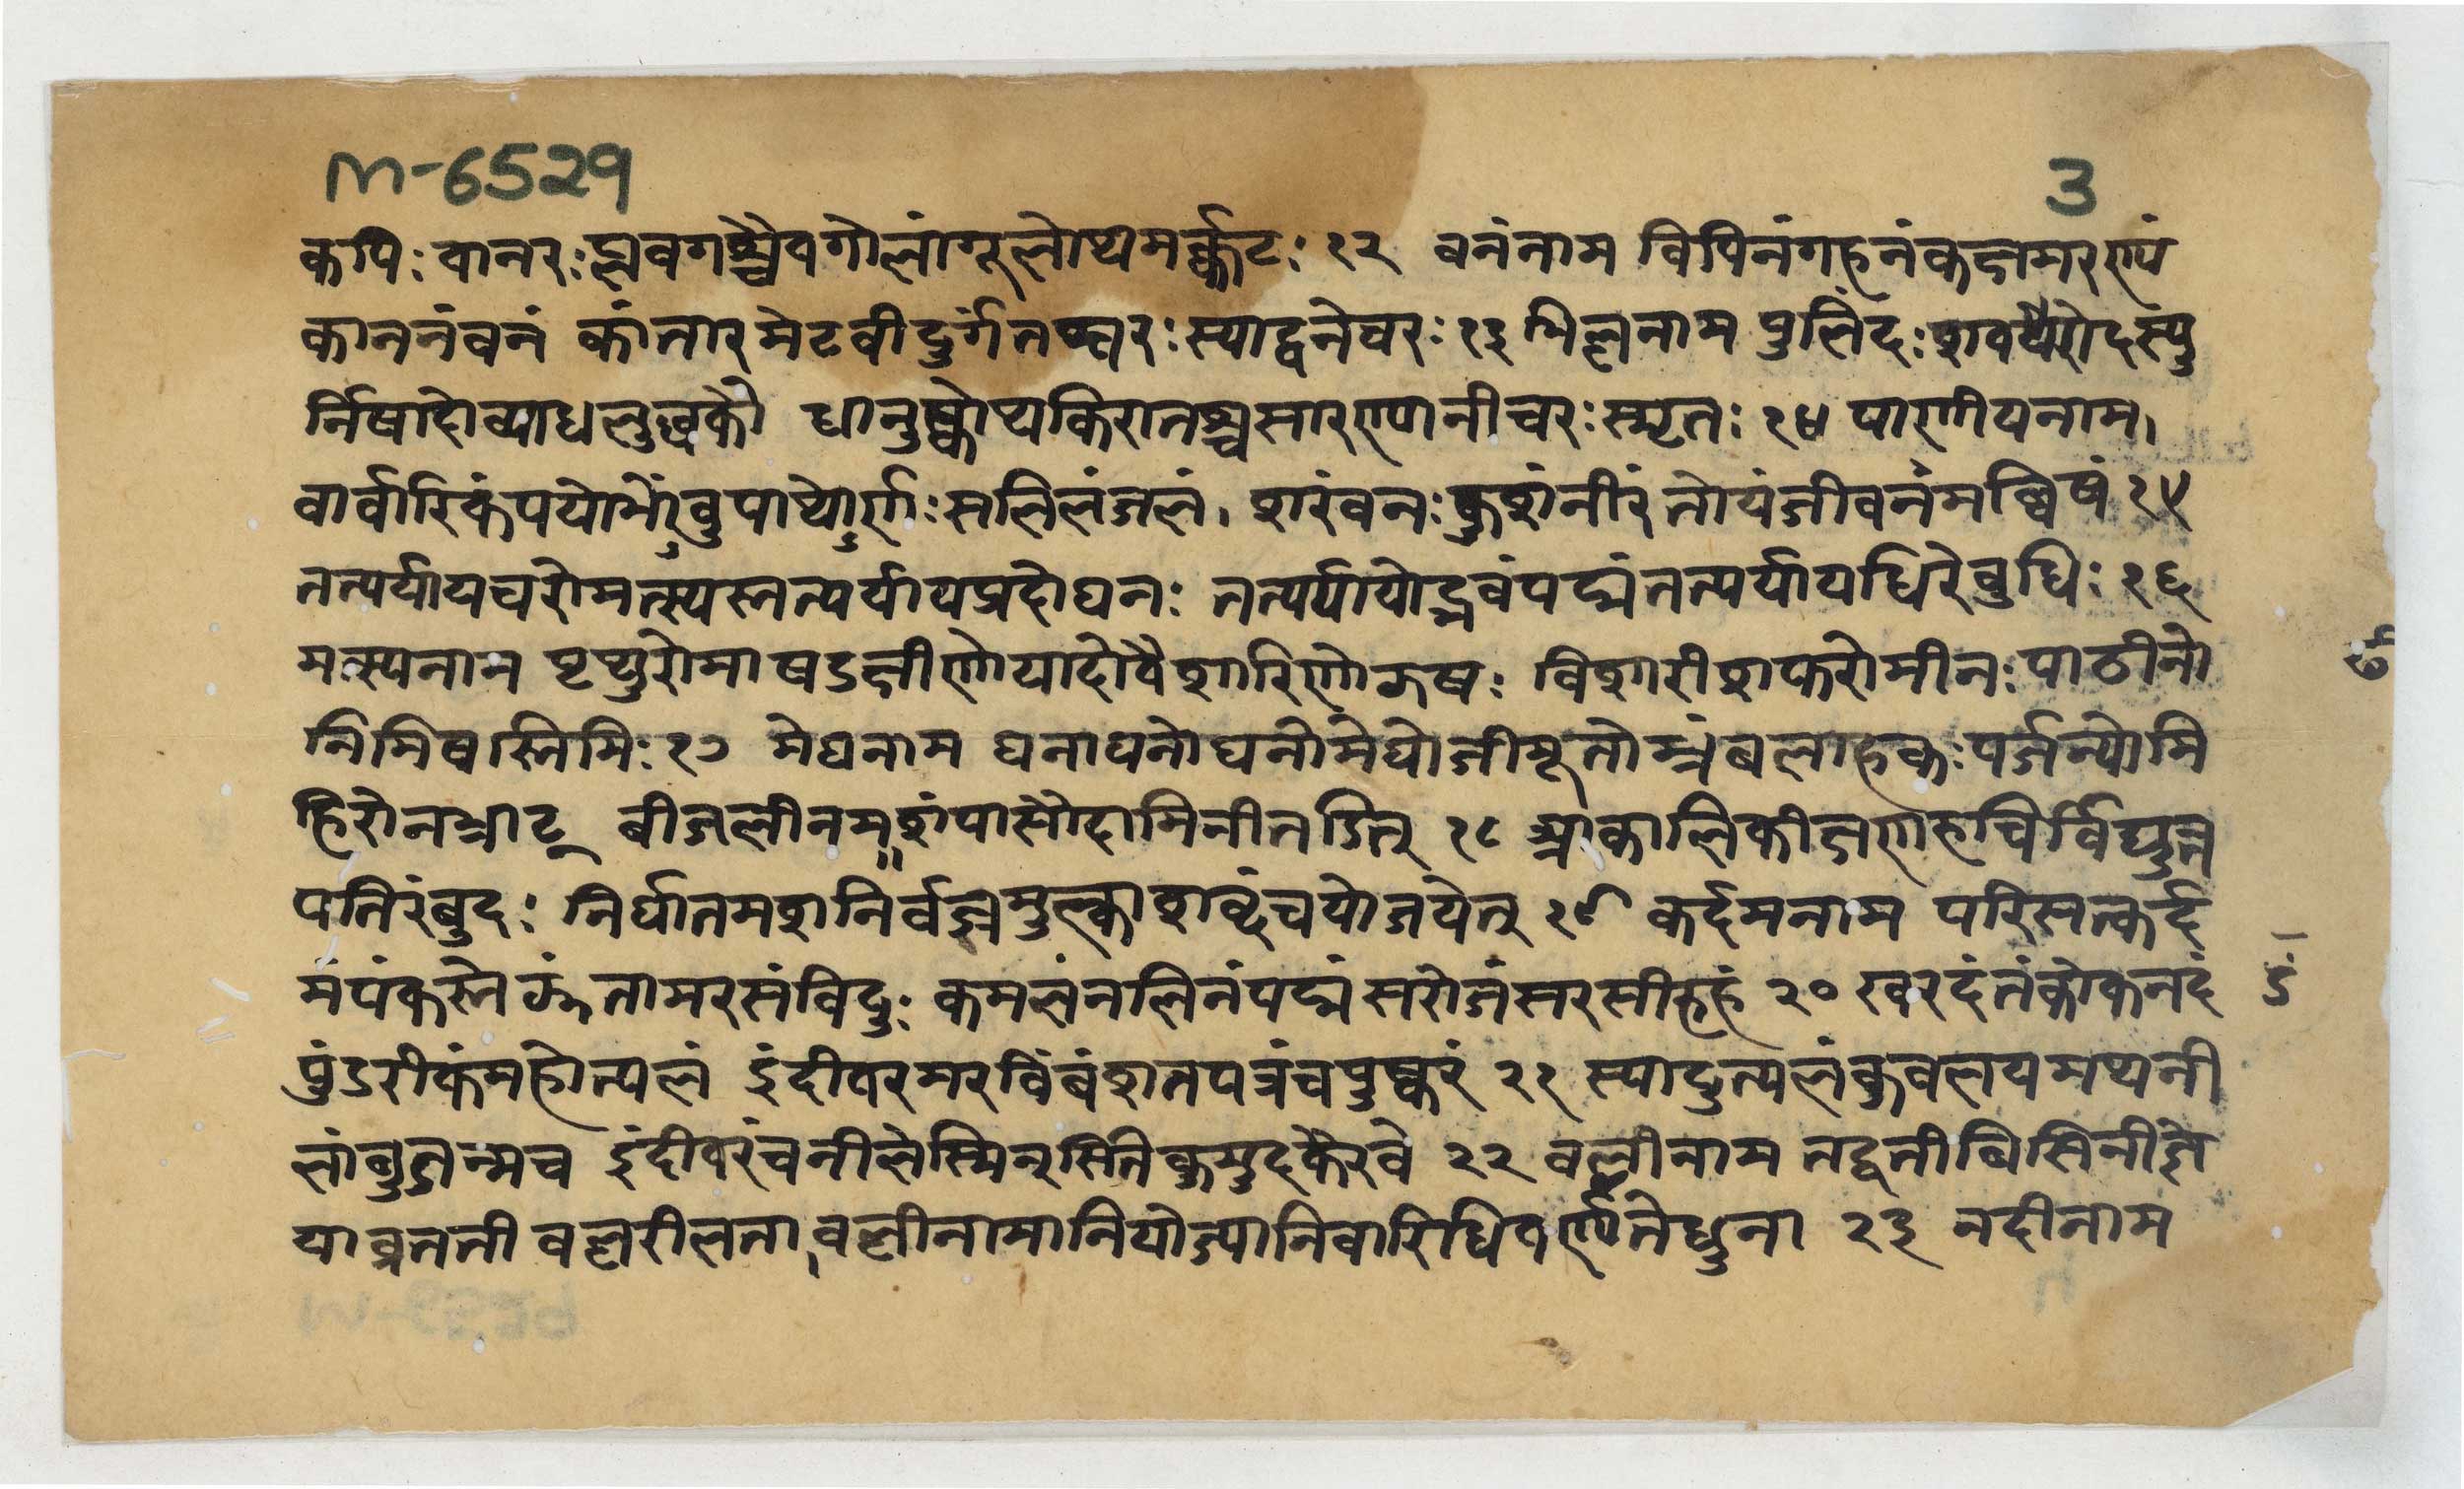 M-6529
3
कपिः वानरः प्लवगश्चैव गोलांगूलोथ मर्क्कटः १२ वनंनाम विपिनं गहनं कक्षमरण्यं
काननं वनं कांतारमटवी दुर्गं तच्चरः स्याद्वनेचरः १३ भिल्लनाम पुलिंदः शवरो दस्यु
र्निषादो व्याधलुब्धकौ धानुष्कोथ किरातश्च सारण्यानीचरः स्मृतः १४ पाणीयनाम।
वार्वारिकं पयोंभोंवु पाथोर्णः सलिलं जलं। शरं वनः कुशं नीरं तोयं जीवनमब्विषं १५
तत्पर्यायचरो मत्स्यस्तत्पर्यायप्रदो घनः तत्पर्यायोद्भवं पद्मं तत्पर्यायधिरंबुधिः १६
मत्स्यनाम पृथुरोमा षडक्षीणो यादो वैशारिणो झषः विशारी शफरो मीनः पाठीनो
निमिषस्तिमिः १७ मेघनाम घनाघनो घनो मेघो जीमूतोभ्रं बलाहकः पर्जन्यो मि
हिरो नभ्राट् बीजलीनाम शंपा सौदामिनी तडित् १८ आकालिकी क्षणरुचिर्विद्युत्त
पतिरंबुदः निर्घातमशनिर्वज्रमुल्काशब्दं च योजयेत् १९ कर्दमनाम परिसत्कर्द
मं पंकस्तेज्जं तामरसं विदुः कमलं नलिनं पद्मं सरोजं सरसीरुहं २० खरदंडं तं कोकनदं
पुंडरीकं महोत्पलं इंदीवरमरविंबं शतपत्रं च पुष्करं २१ स्यादुत्पलं कुवलयमथ नी
लांबुजन्म च इंदीवरं च नीलेस्मिन् सिते कुमुदकैरवे २२ वल्लीनाम तद्वती बिसिनी ज्ञे
या व्रतती वल्लरी लता। वल्लीनामानि योज्यानि वारिधिर्वर्ण्यतेधुना २३ नदीनाम